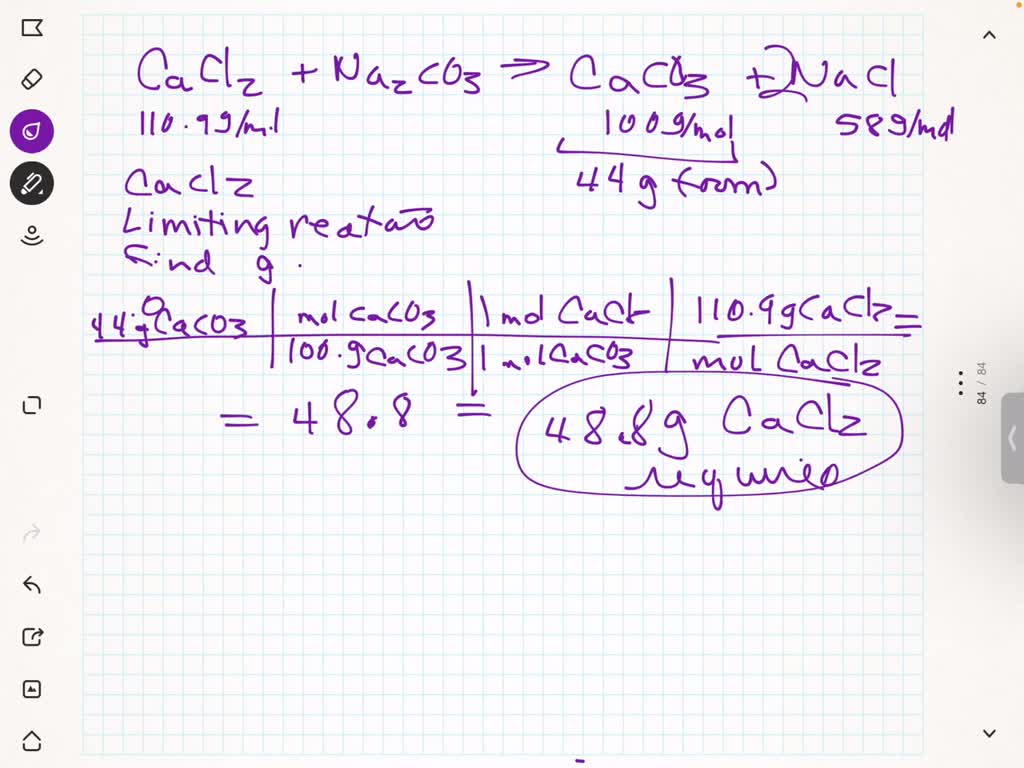 CaCl2 + Na2CO3 => CaCO3 + 2NaCl
110.99/m.l 1009/mol 589/mol
44g (form)
CaClz
Limiting reatao
Find g.
44.0gCaCO3 | mol CaCO3 | 1 mol CaCl | 110.9gCaCl2 =
100.gCaCO3 | 1 molCaCO3 | mol CaCl2
= 48.8 = 48.8g CaCl2
required
84 / 84